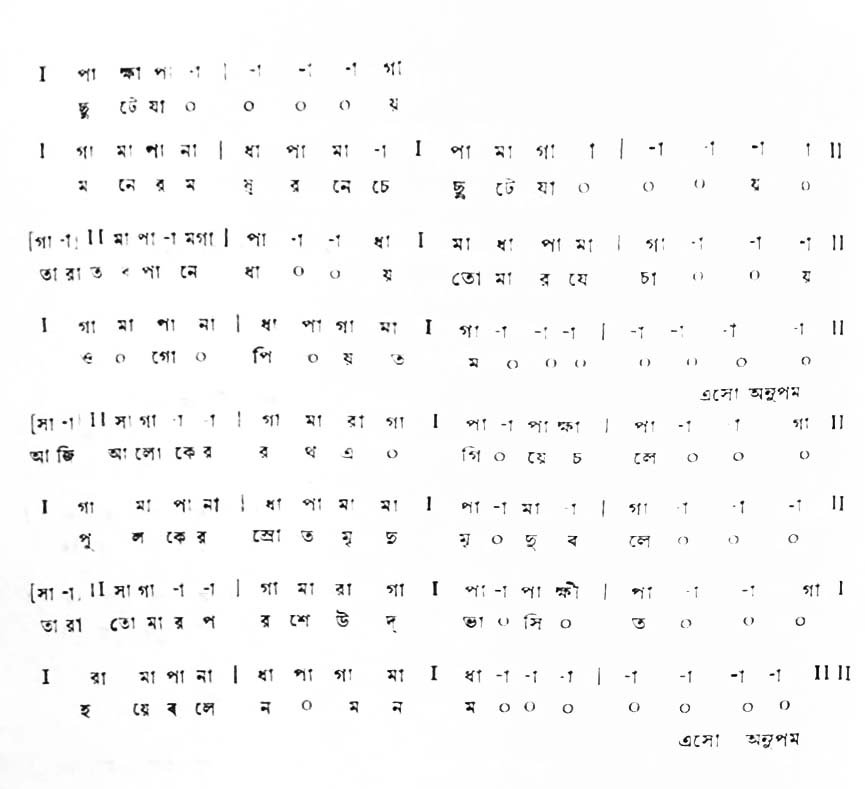 I পা ক্ষা পা -া | -া -া -া গা
ছু টে যা ০ ০ ০ ০ য়
I গা মা পা না | ধা পা মা -া I পা মা গা া | -া -া -া া II
ম নে র ম সু র নে চে ছু টে যা ০ ০ ০ য় ০
[গা -া] II মা পা -া মগা | পা -া -া ধা I মা ধা পা মা | গা -া -া -া II
তা রা ত ব পা নে ধা ০ ০ য় তো মা র যে চা ০ ০ য়
I গা মা পা না | ধা পা গা মা I গা -া -া -া | -া -া -া -া II
ও ০ গো ০ পি ০ য় ত ম ০ ০ ০ ০ ০ ০ ০
এসো অনুপম
[সা -া] II সা গা -া -া | গা মা রা গা I পা -া পা ক্ষা | পা -া া গা II
আ জি আ লো কে র র থ এ ০ গি ০ য়ে চ লে ০ ০ ০
I গা মা পা না | ধা পা মা মা I পা -া মা -া | গা -া -া -া II
পু ল কে র স্রো ত মৃ ছ মৃ ০ ছ্ ব লে ০ ০ ০
[সা -া] II সা গা -া -া | গা মা রা গা I পা -া পা ক্ষী | পা -া -া গা I
তা রা তো মা র প র শে উ দ্ ভা ০ সি ০ ত ০ ০ ০
I রা মা পা না | ধা পা গা মা I ধা -া -া -া | -া -া -া -া II II
হ য়ে ব লে ন ০ ম ন ম ০ ০ ০ ০ ০ ০ ০
এসো অনুপম